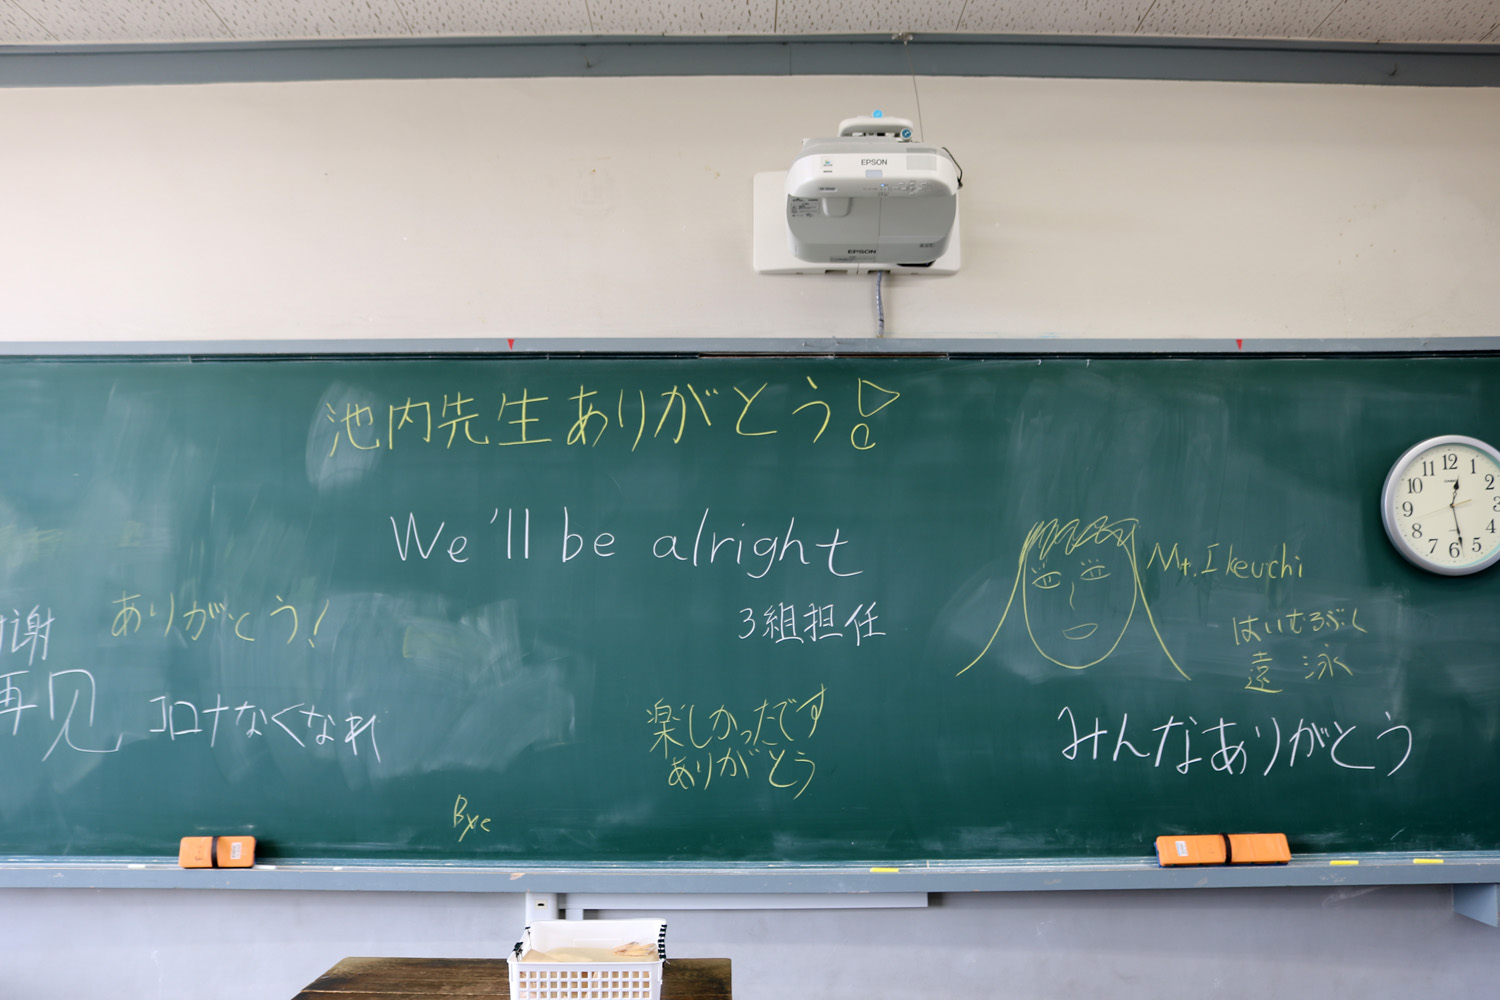 EPSON
EPSON
池内先生ありがとう!
We'll be alright
3組担任
謝
ありがとう!
再见
コロナなくなれ
楽しかったです
ありがとう
Bye
Mr. Ikeuchi
遠泳
みんなありがとう
12
1
2
3
4
6
7
8
9
10
11